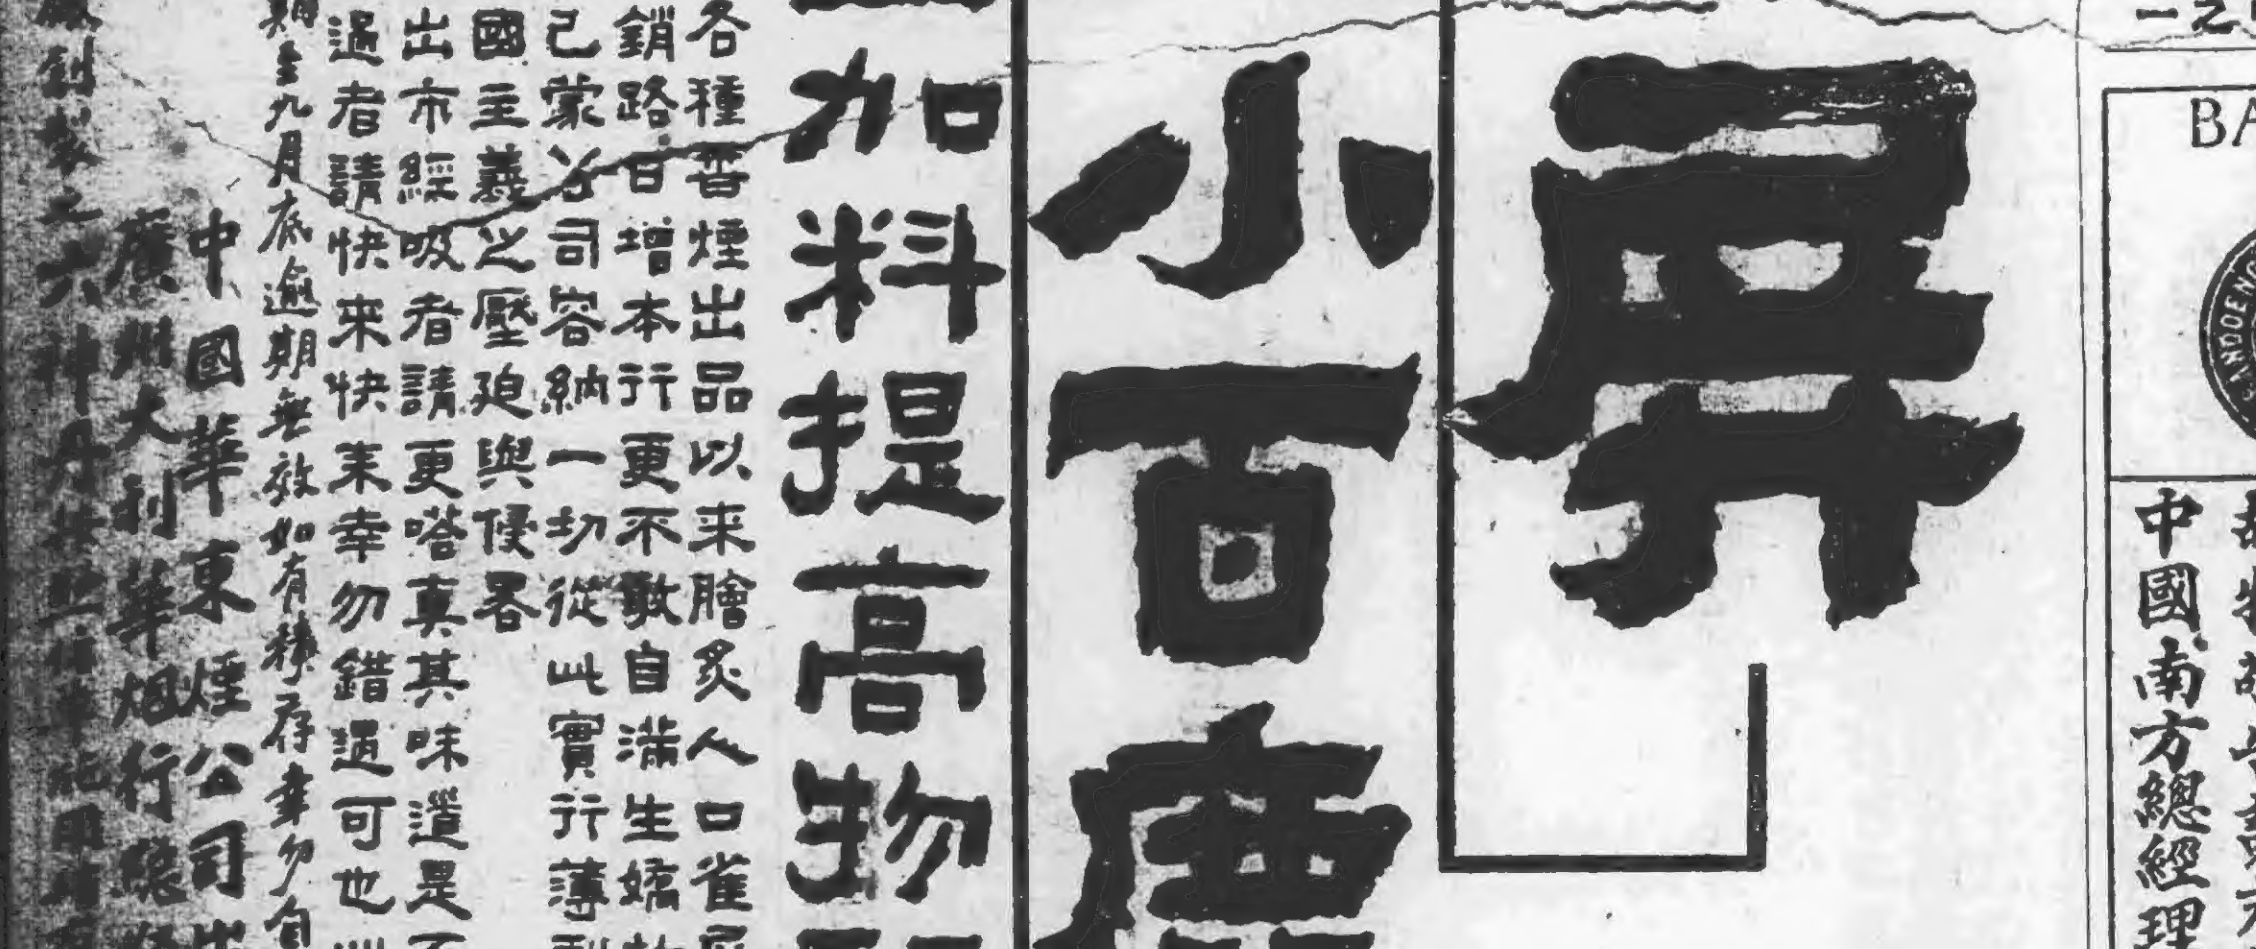 一之
BA
中國南方總經理
屏
小百
加料提高物
各種香煙出品以來膾炙人口雀屏
銷路日增本行更不敢自滿生嬌故
己蒙公司容納一切從此實行薄利
國主義之壓廹與侵畧
出市經吸者請更嗒真其味道是不
過者請快來快來幸勿錯過可也
期至九月底逾期無效如有積存幸勿自
中國華東煙公司出
廣州大利華烟行總經
廠創製之六神丹